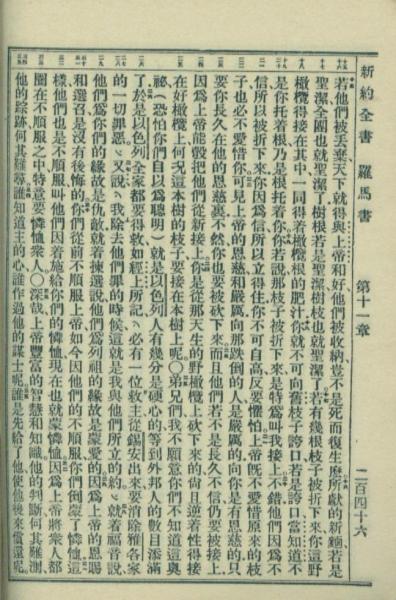 新約全書 羅馬書 第十一章 二百四十六
若他們被丟棄天下就得與上帝和好他們被收納豈不是死而復生麼所獻的新麵若是
聖潔全團也就聖潔了樹根若是聖潔樹枝也就聖潔了若有幾根枝子被折下來你這野
橄欖得接在其中一同得着橄欖根的肥汁你就不可向舊枝子誇口若是誇口當知道不
是你托着根乃是根托着你你若說那枝子被折下來是特為叫我接上不錯他們因為不
信所以被折下來你因為信所以立得住你不可自高反要懼怕上帝旣不愛惜原來的枝
子也必不愛惜你可見上帝的恩慈和嚴厲向那跌倒的人是嚴厲的向你是有恩慈的只
要你長久在他的恩慈裏不然你也要被砍下來而且他們若不是長久不信仍要被接上
因為上帝能彀把他們從新接上你是從那天生的野橄欖上砍下來的尙且逆着性得接
在好橄欖上何況這本樹的枝子要接在本樹上呢○弟兄們我不願意你們不知道這奧
祕(恐怕你們自以為聰明)就是以色列人有幾分是硬心的等到外邦人的數目添滿
了於是以色列全家都要得救如經上所記必有一位救主從錫安出來要消除雅各家
的一切罪惡又說我除去他們罪的時候這就是我與他們所立的約就着福音說
他們為你們的緣故是仇敵就着揀選說他們為列祖的緣故是蒙愛的因為上帝的恩賜
和選召是沒有後悔的你們從前不順服上帝如今因他們的不順服你們倒蒙了憐恤這
樣他們也是不順服叫他們因着施給你們的憐恤現在也就蒙憐恤因為上帝將衆人都
圈在不順服之中特意要憐恤衆人○深哉上帝豐富的智慧和知識他的判斷何其難測
他的踪跡何其難尋誰知道主的心誰作過他的謀士呢誰是先給了他使他後來償還呢